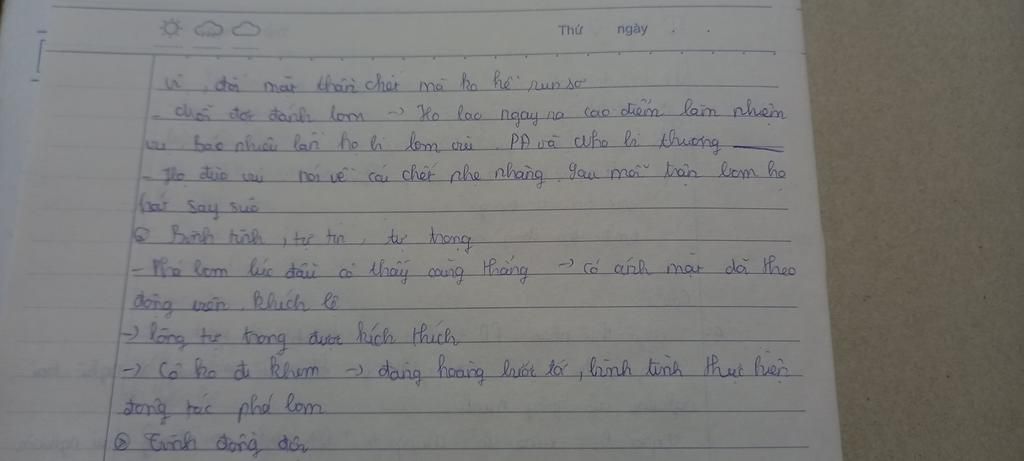 Thứ ngày
vì, đối mặt thần chết mà ko hề run sợ
- dưới đợt đánh bom -> Họ lao ngay ra cao điểm làm nhiệm
vụ bao nhiêu lần họ bị bom vùi. PĐ và Nho bị thương
- Họ đùa vui nói về cái chết nhẹ nhàng. Sau mỗi trận bom họ
hát say sưa
Bình tĩnh, tự tin, tự trọng
- Phá bom lúc đầu có thấy căng thẳng -> có ánh mắt dõi theo
động viên, khích lệ
-> lòng tự trọng được kích thích
-> Cô ko đi khom -> đàng hoàng bước tới, bình tĩnh thực hiện
động tác phá bom
Tình đồng đội